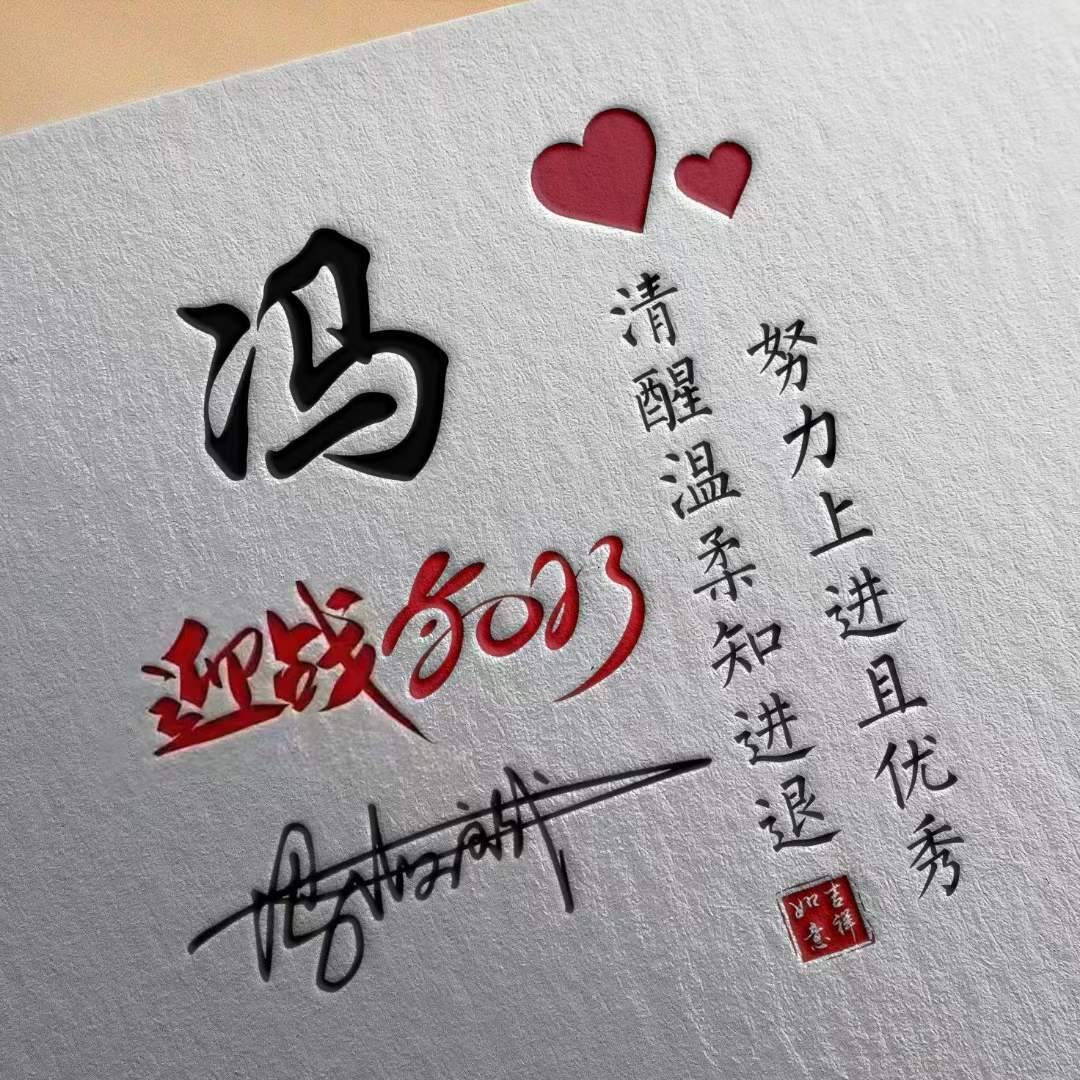 冯
迎战2023
清醒温柔知进退
努力上进且优秀
吉祥
如意